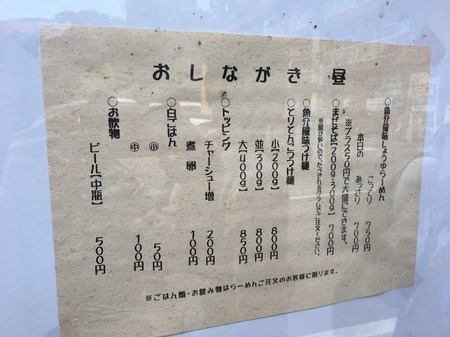 おしながき 昼
○魚介風味しょうゆらーめん
こってり 750円
本日の あっさり 700円
※プラス50円で大盛にできます。
○まぜそば【200g・300g】 700円
○魚介風味つけ麺
○とりとんこつつけ麺
小【200g】 800円
並【300g】 800円
大【400g】 850円
○トッピング
チャーシュー増 200円
煮卵 100円
○白ごはん
小 50円
中 100円
○お飲物
ビール【中瓶】 500円
※ごはん類・お飲み物はらーめんご注文のお客様に限ります。